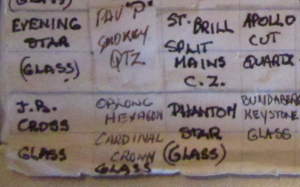 (GLASS)
EVENING
STAR
(GLASS)
PAV "P"
SMOKEY
QTZ
ST. BRILL
SPLIT
MAINS
C.Z.
APOLLO
CUT
QUARTZ
J.R.
CROSS
GLASS
OBLONG
HEXAGON
CARDINAL
CROWN
GLASS
PHANTOM
STAR
(GLASS)
BUNDABERG
KEYSTONE
GLASS